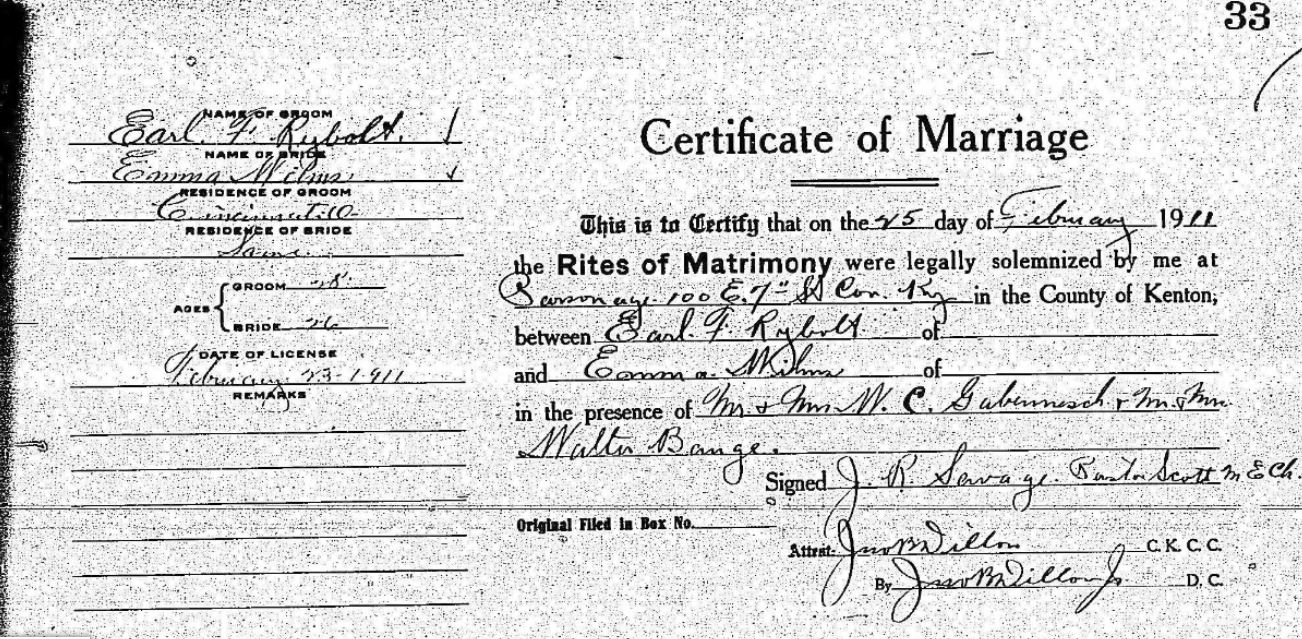 33
NAME OF GROOM
Earl. F Rybolt.
NAME OF BRIDE
Emma Wilms
RESIDENCE OF GROOM
Cincinnati O-
RESIDENCE OF BRIDE
Same.
AGES
GROOM 28
BRIDE 26
DATE OF LICENSE
February 23-1911
REMARKS
Certificate of Marriage
This is to Certify that on the 25 day of February 1911
the Rites of Matrimony were legally solemnized by me at
Parsonage 100 E. 7" St Cov. Ky in the County of Kenton;
between Earl. F. Rybolt of
and Emma Wilms of
in the presence of Mr. & Mrs. W. C. Gabennesch & Mr. & Mrs
Walter Bange.
Signed J. R. Savage. Pastor Scott M E Ch.
Original Filed in Box No.
Attest- Jno B Dillon C. K. C. C.
By Jno B Dillon Jr D. C.